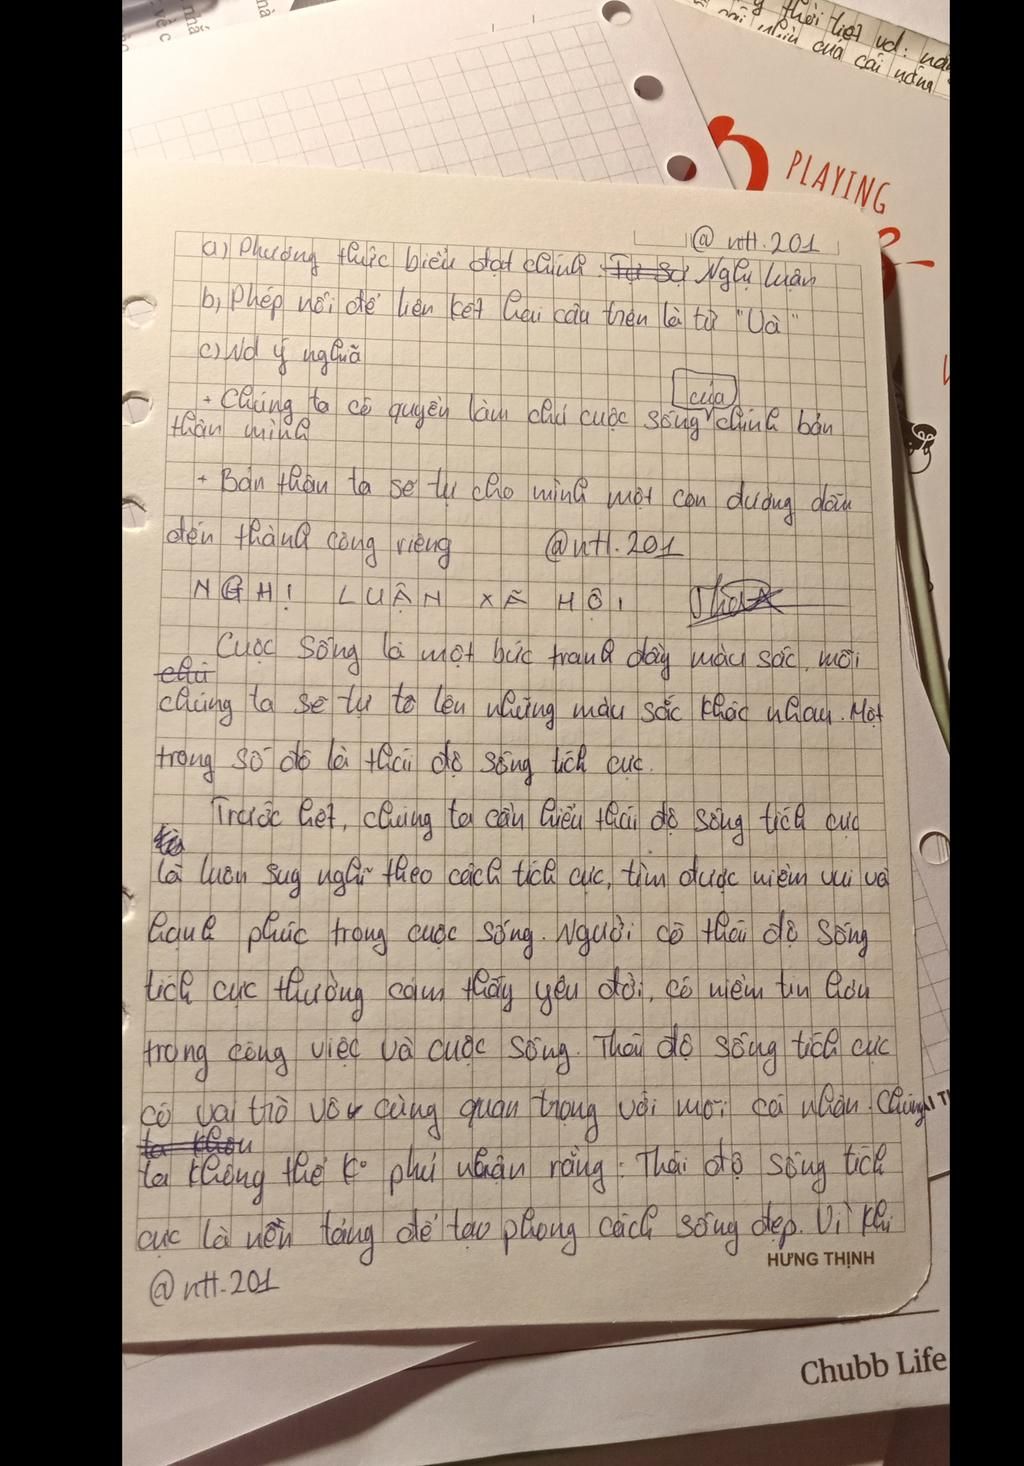 thời tiết vd:
của cái nắng
PLAYING
@ ntt.201
a) Phương thức biểu đạt chính: Tự sự Nghị luận
b) Phép nối để liên kết hai câu trên là từ "Và"
c) Nd ý nghĩa
của
+ Chúng ta có quyền làm chủ cuộc sống chính bản
thân mình
+ Bản thân ta sẽ tự cho mình một con đường dẫn
đến thành công riêng @ntt.201
NGHỊ LUẬN XÃ HỘI
Cuộc sống là một bức tranh đầy màu sắc, mỗi
chúng ta sẽ tự tô lên những màu sắc khác nhau. Một
trong số đó là thái độ sống tích cực.
Trước hết, chúng ta cần hiểu thái độ sống tích cực
là luôn suy nghĩ theo cách tích cực, tìm được niềm vui và
hạnh phúc trong cuộc sống. Người có thái độ sống
tích cực thường cảm thấy yêu đời, có niềm tin hơn
trong công việc và cuộc sống. Thái độ sống tích cực
có vai trò vô cùng quan trọng với mỗi cá nhân. Chúng
ta khôn
ta không thể k° phủ nhận rằng: Thái độ sống tích
cực là nền tảng để tạo phong cách sống đẹp. Vì khi
HƯNG THỊNH
@ntt.201
Chubb Life